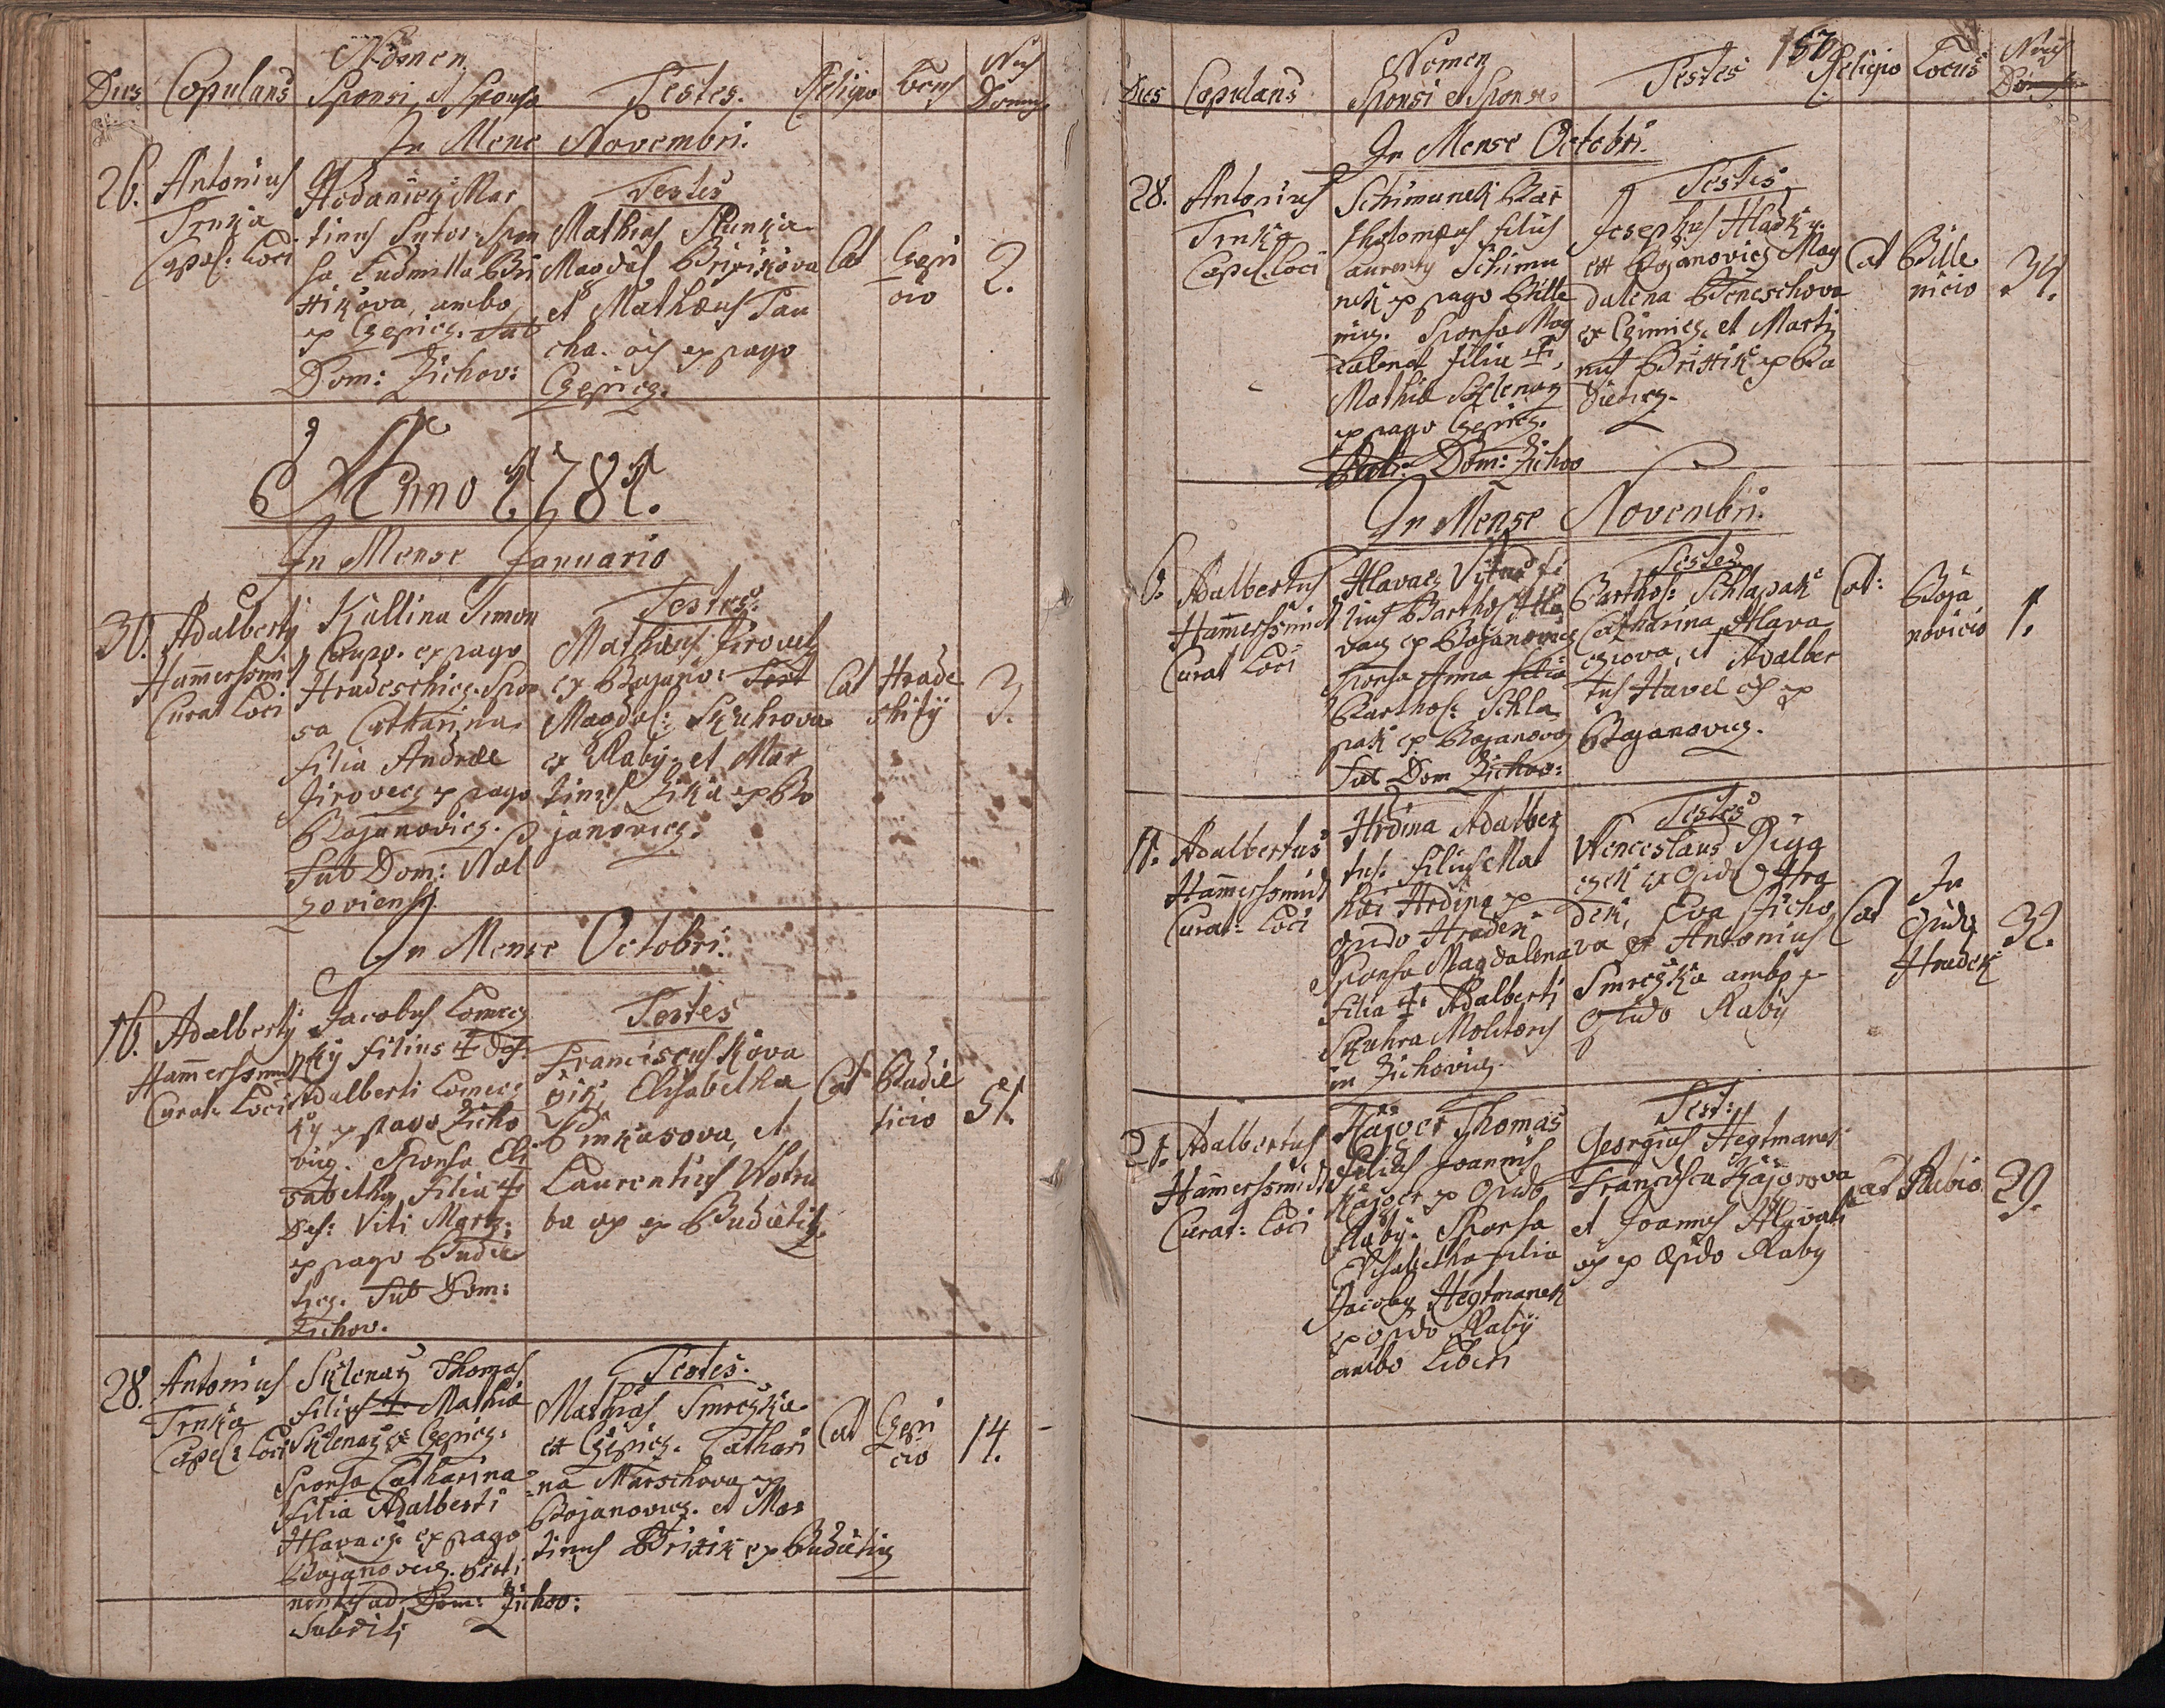 Dies Copulans Nomen Sponsi et Sponsa Testes. Religio Locus Nus Domus
In Mense Novembri.
26. Antonius
Trnka
Capel: Loci
Hodanicz Mar
tinus Sutor. Spon
sa Ludmilla Bri
ttikova, ambo
ex Czepicz. Sub
Dom: Zichov:
Testes
Mathias
Magdal
et Mathæus Pau
cha. oes ex pago
Czepicz.
Cat
Czepi
cio
2.
Anno 1781.
In Mense Januario
30. Adalbertq
Hamerssmit
Curat Loci
Kallina Simon
ex pago
Hradeschicz. Spon
sa Catharina
filia Andreæ
Jirovecz ex pago
Bojanovicz.
Sub Dom: Nal
zoviensi.
Testes.
Mathæus Jirovecz
ex Bojano:
Magdal: Skuhrova
ex Raby, et Mar
tinus Zika ex Bo
janovicz.
Cat
Hrade
3.
In Mense Octobri.
16. Adalbertq
Hamerssmit
Curat: Loci
Jacobus Lomecz
ký filius
Adalberti Lomecz
ký ex pago Zicho
vicz. Sponsa Eli
sabetha, filia
Def: Viti
ex pago Budie
ticz. Sub Dom:
Zichov.
Testes
Franciscus Kova
rzik, Elisabetha
et
Laurentius Wotru
ba oes ex Budieticz.
Cat
Budie
ticio
51.
28. Antonius
Trnka
Capel: Loci
Sklenarz Thomas
filius Mathiæ
Sklenarz ex Czepicz.
Sponsa Catharina
filia Adalberti
Hlavacz ex pago
Bojanovicz.
ad Dom: Zichov:
Subditi
Testes.
Mathias Smrczka
ex Czepicz. Cathari
na Marschova ex
Bojanovicz. et Mar
tinus Brittik ex Budieticz
Cat
Czepi
cio
14.
157
Dies Copulans Nomen Sponsi et Sponsæ Testes Religio Locus Nus
In Mense Octobri.
28. Antonius
Trnka
Capel: Loci
Schimunek Bar
tholomæus filius
Laurentÿ Schimu
nek ex pago Bille
nicz. Sponsa Mag
dalena filia
Mathiæ Sklenarz
ex pago Czepicz.
Dom: Zichov
Testes
Josephus Hladky
ex Bojanovicz Mag
dalena Beneschova
ex et Marti
nus Brittik ex Bu
dieticz.
Cat
Bille
nicio
34.
In Mense Novembri.
6. Adalbertus
Hamerssmidt
Curat Loci
Hlavacz Vitus fi
lius Barthol Hla
vacz ex Bojanovicz
Sponsa Anna filia
Barthol: Schla
pak ex Bojanovicz
Sub Dom Zichov:
Testes
Barthol: Schlapak
Catharina Hlava
czova, et Adalber
tus Havel oes ex
Bojanovicz.
Cat:
Boja
novicio
1.
11. Adalbertus
Hamerssmidt
Curat: Loci
Hrdina Adalber
tus. filius Mat
hæi Hrdina ex
Opido Hradek
Sponsa Magdalena
filia Adalberti
Skuhra Molitoris
in Zichovicz.
Testes
Wenceslaus
ex Opido Hra
dek, Eva Zicho
va et Antonius
Smrczka ambo ex
Opido Raby
Cat
In
Opido
Hradek
32.
21. Adalbertus
Hamerssmidt
Curat: Loci
Kajger Thomas
filius Joannis
Kajger ex Opido
Raby. Sponsa
Elisabetha filia
Jacoby Hegtmanek
ex Opido Rabÿ
ambo Liberi
Test:
Georgius Hegtmanek
Francisca
et Joannes
oes ex Opido Raby
Cat
Rabio
29.